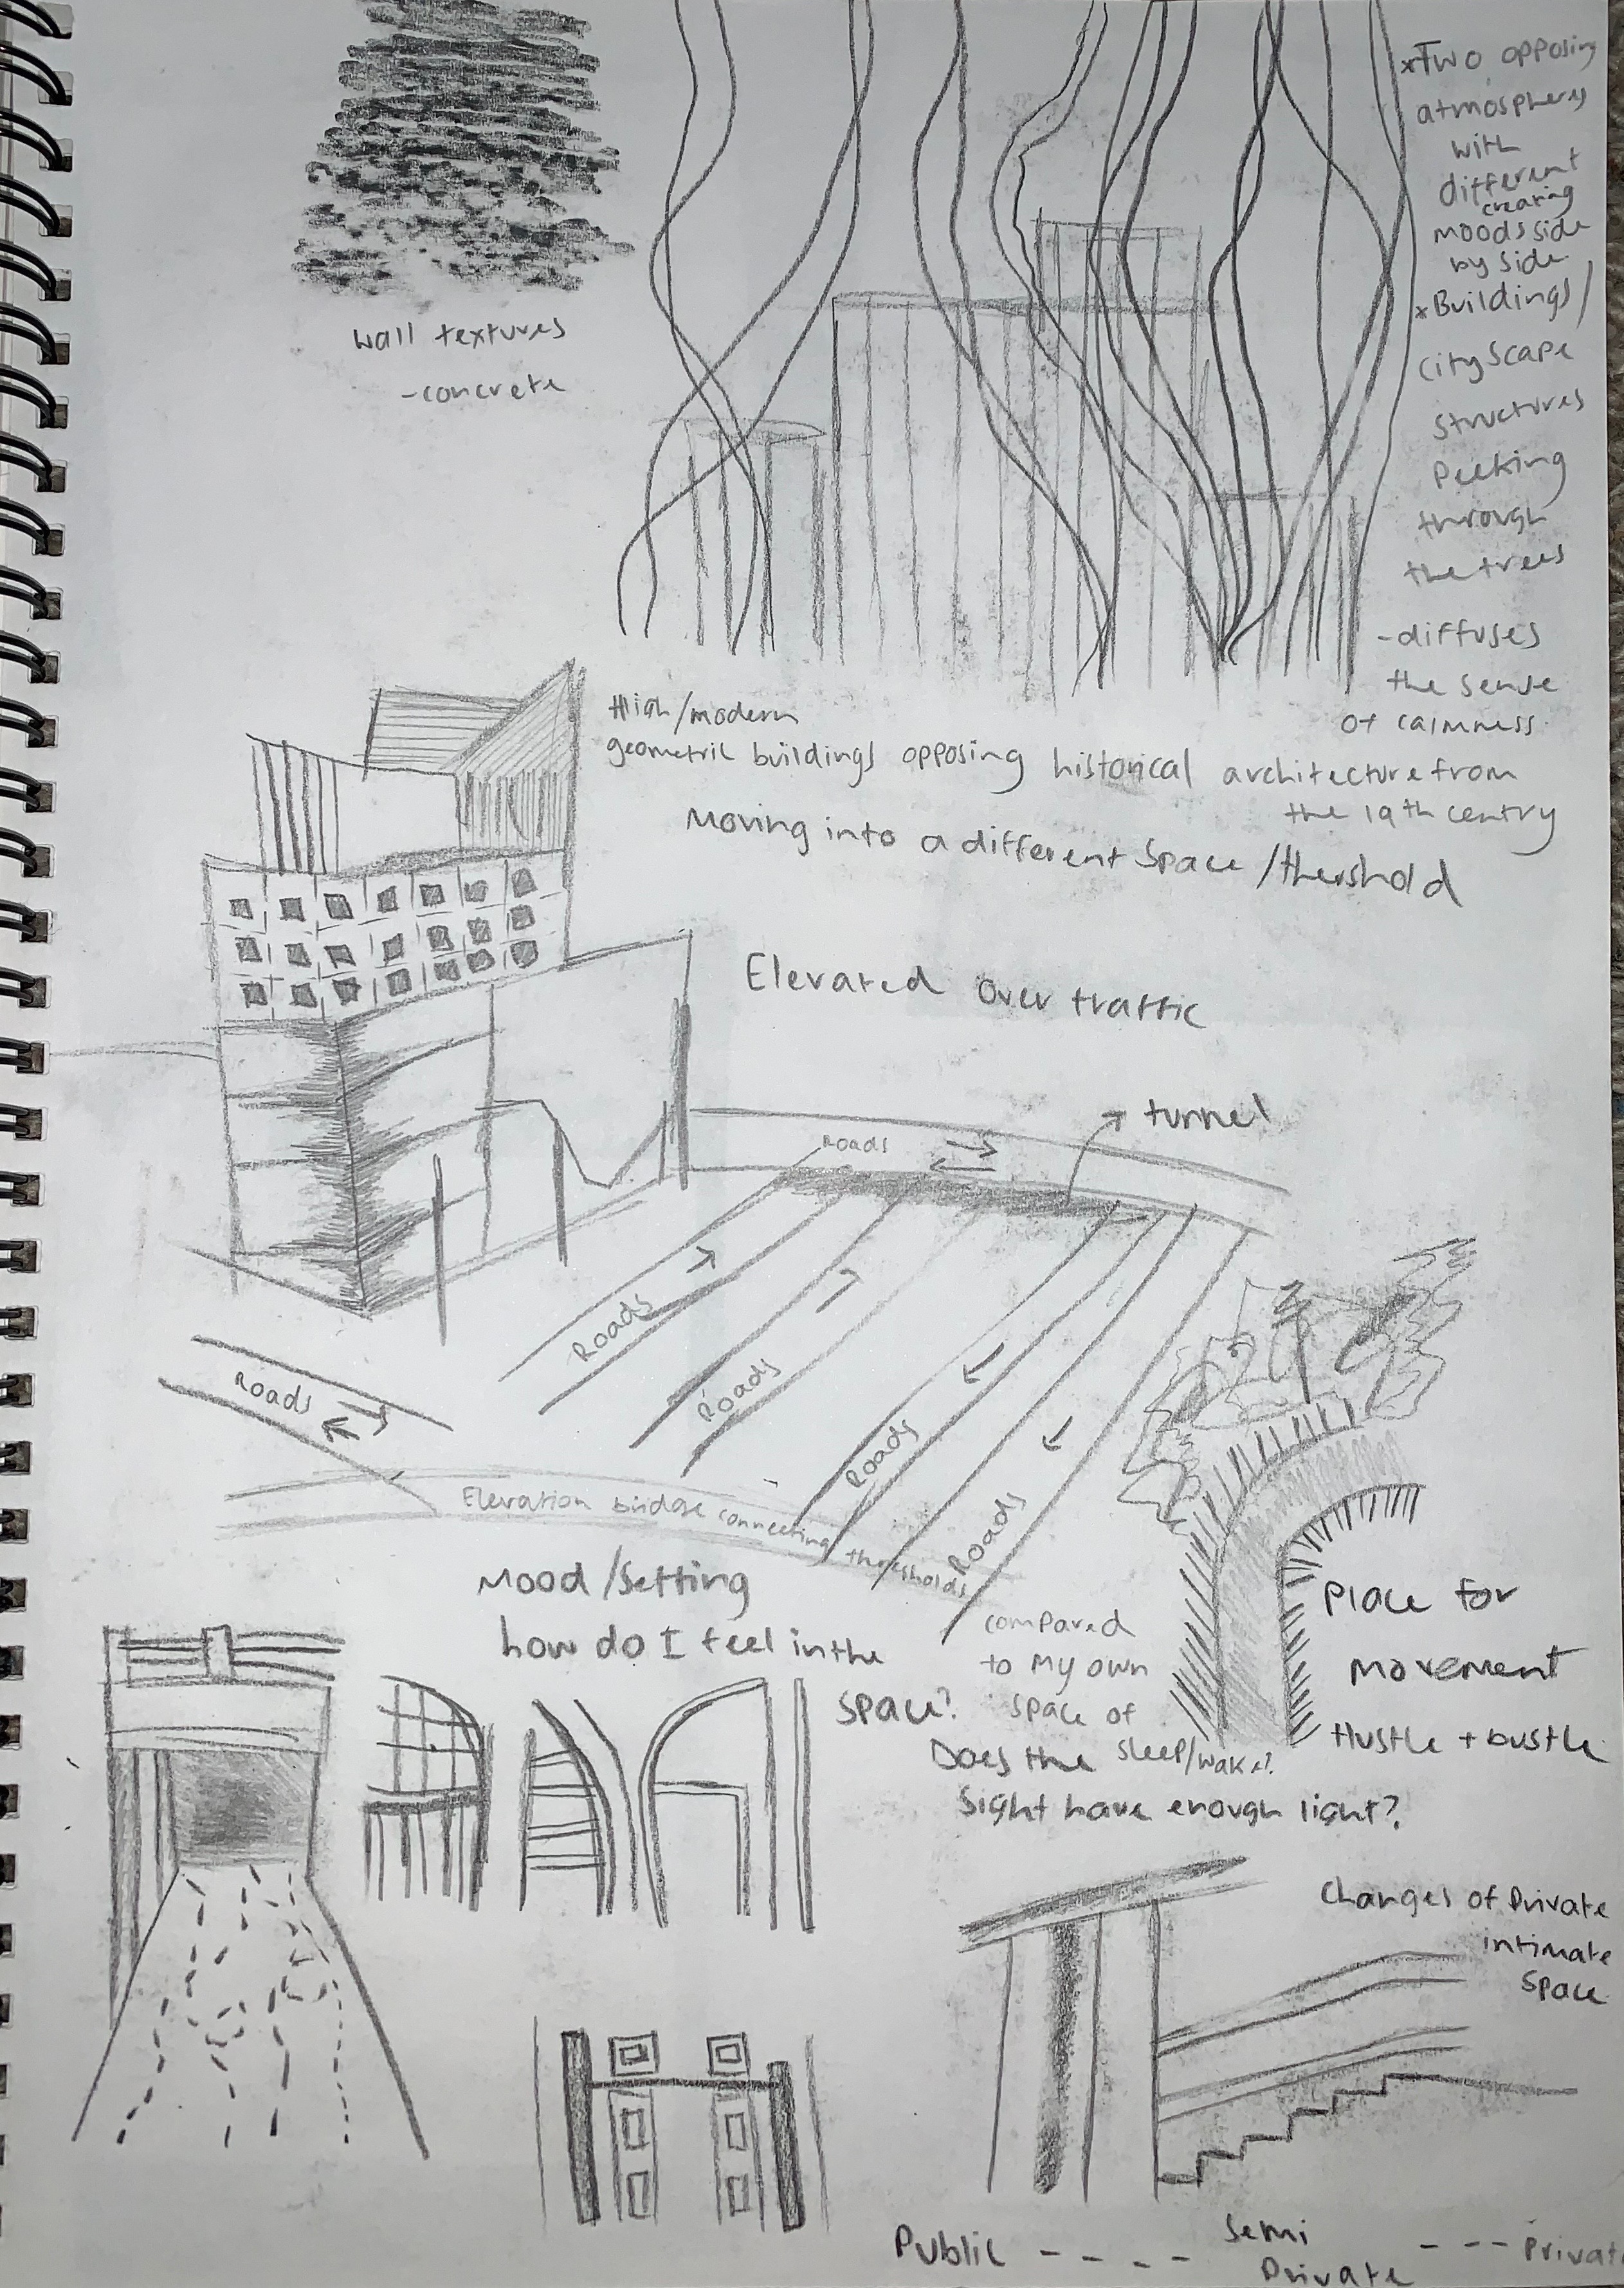 xTwo opposing
atmospheres
with
different
creating
moods side
by side
xBuildings/
cityscape
structures
Peeking
through
the trees
-diffuses
the sense
of calmness
wall textures
-concrete
High/modern
geometric buildings opposing historical architecture from
the 19th centry
Moving into a different space/thershold
Elevated over traffic
tunnel
Roads
Roads
Roads
Roads
Roads
Roads
Elevation bridge connecting thresholds
Mood/Setting
how do I feel in the
space?
compared
to my own
space of
sleep/wake?
Does the
sight have enough light?
Place for
movement
Hustle + bustle
Changes of Private
intimate
space
Public - - - - Semi - - - Privat
Private